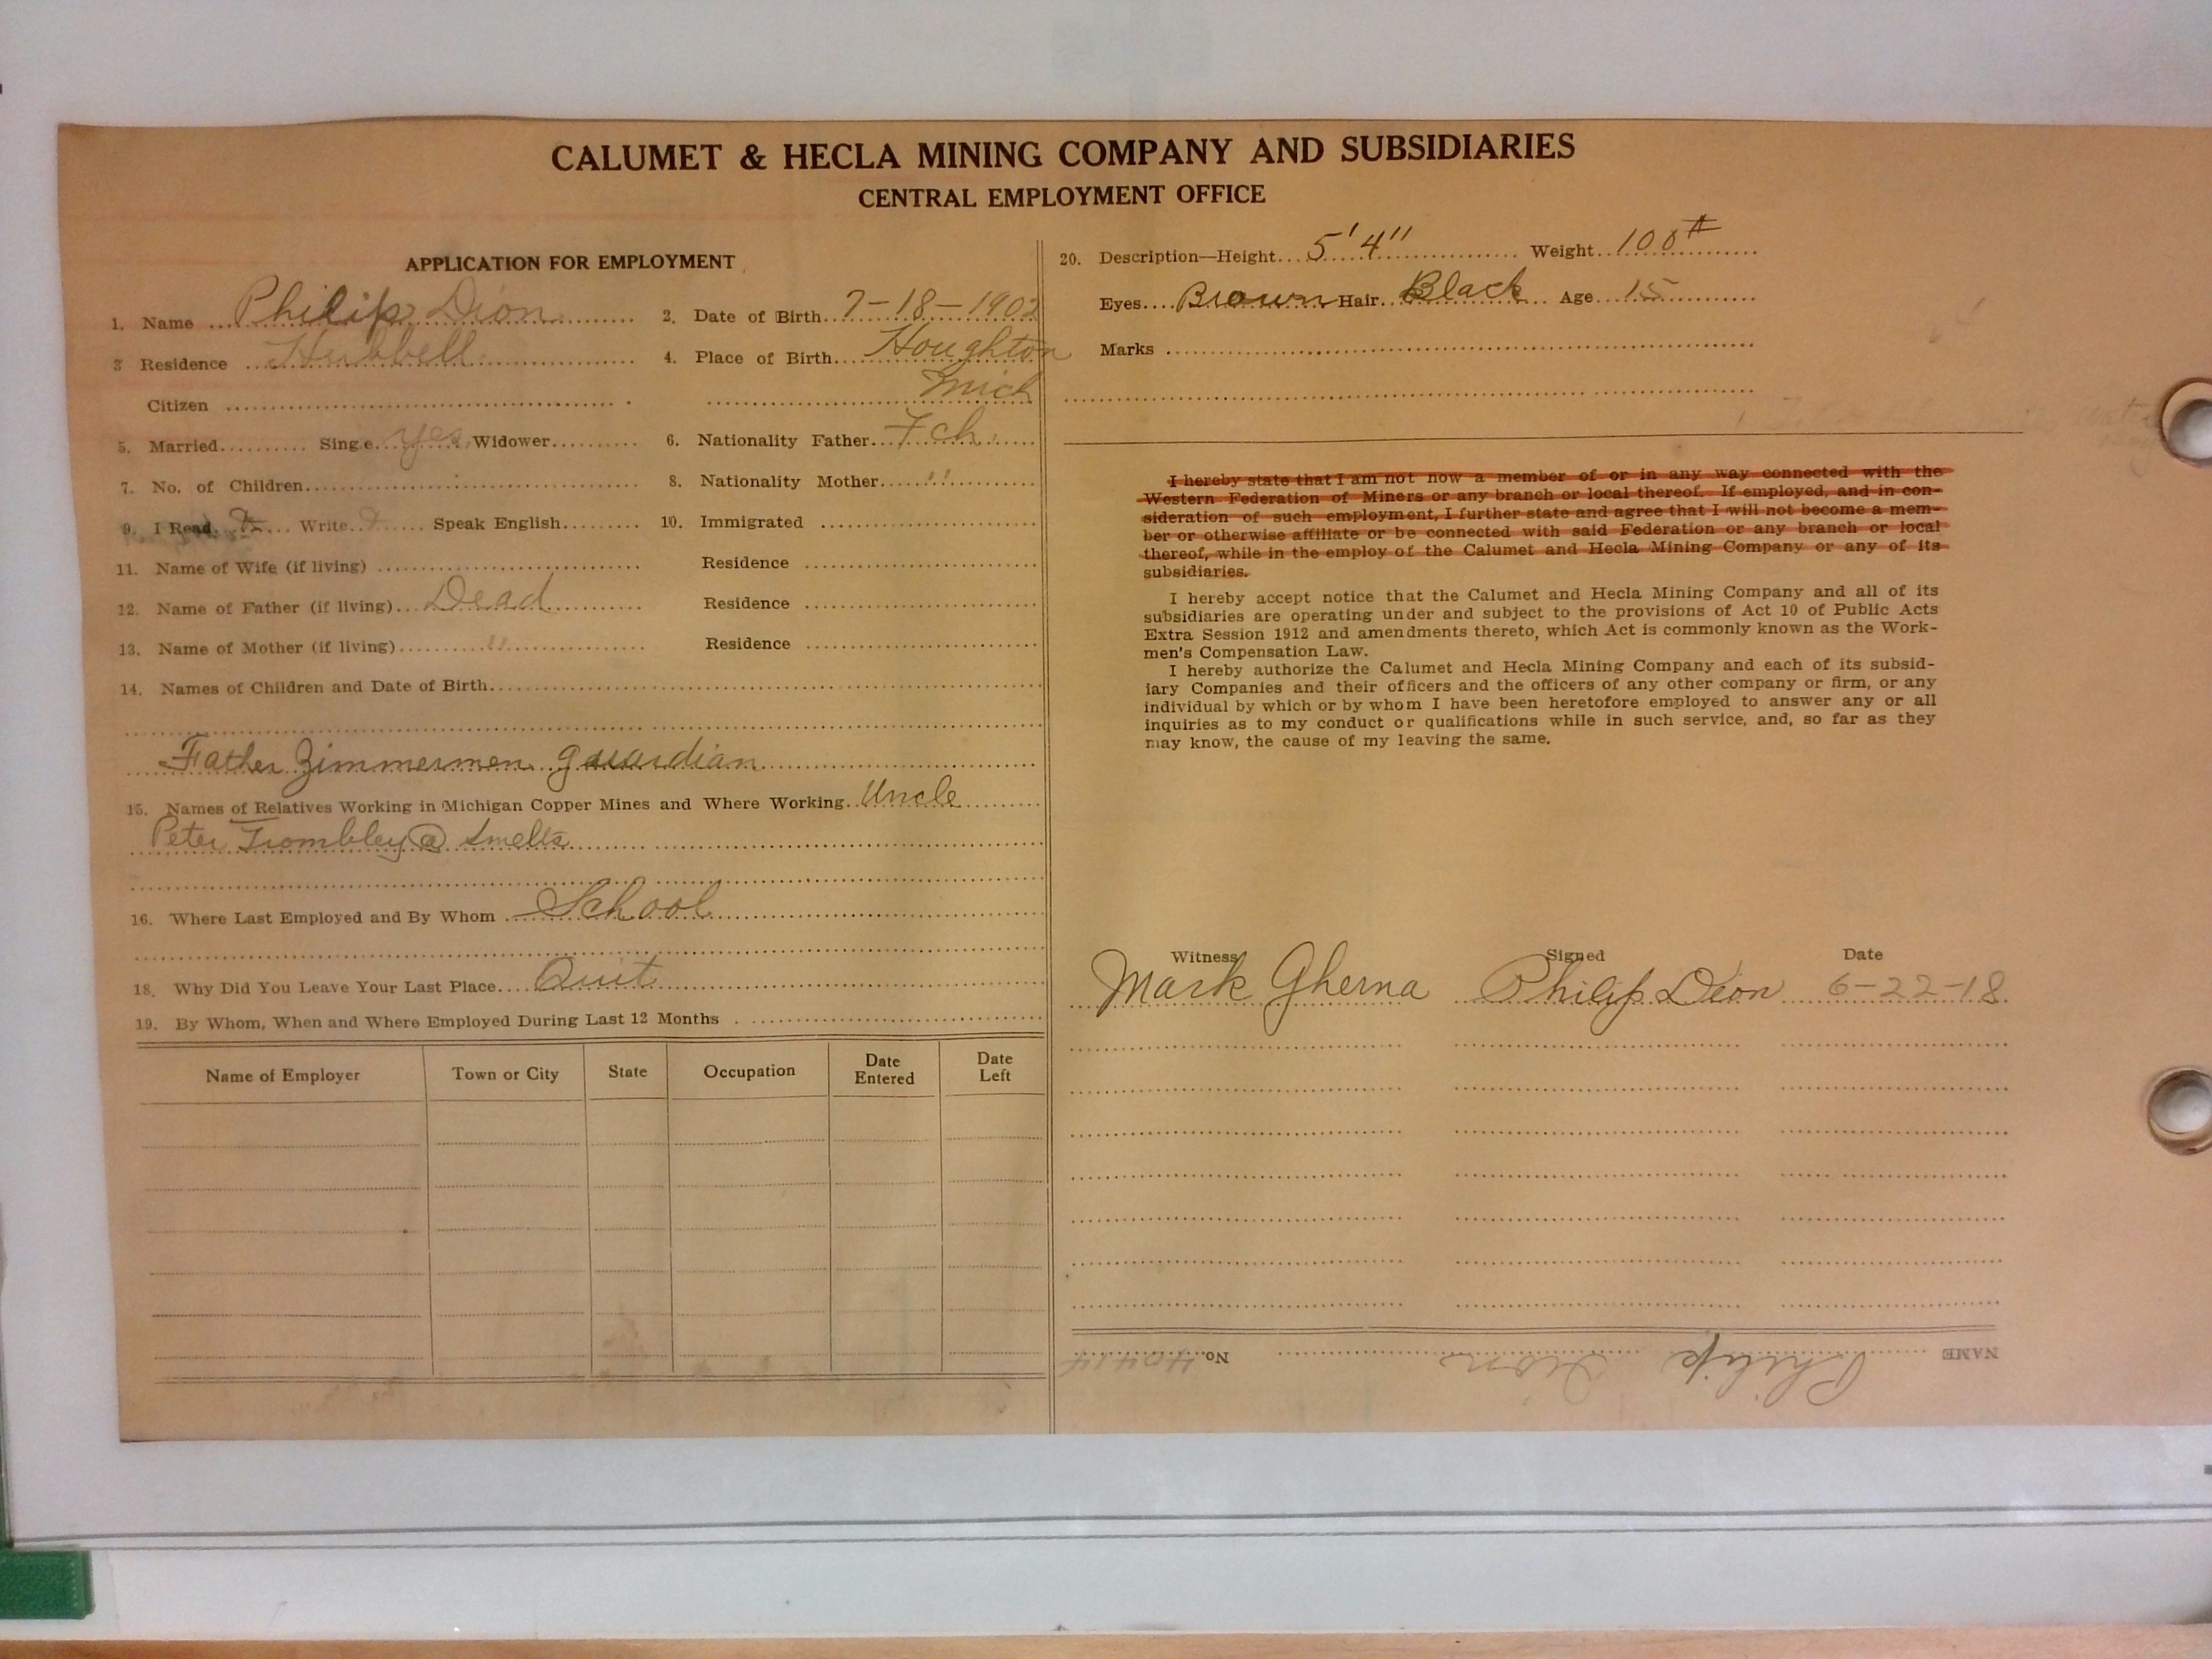 CALUMET & HECLA MINING COMPANY AND SUBSIDIARIES
CENTRAL EMPLOYMENT OFFICE
APPLICATION FOR EMPLOYMENT
1. Name Philip Dion
2. Date of Birth 7-18-1902
3 Residence Hubbell
4. Place of Birth Houghton
Citizen
Mich
5. Married Single yes Widower
6. Nationality Father Fch
7. No. of Children
8. Nationality Mother "
9. I Read Write Speak English
10. Immigrated
11. Name of Wife (if living)
Residence
12. Name of Father (if living) Dead
Residence
13. Name of Mother (if living) "
Residence
14. Names of Children and Date of Birth
Father Zimmermen guardian
15. Names of Relatives Working in Michigan Copper Mines and Where Working Uncle
Peter Trombley @ Smelts
16. Where Last Employed and By Whom School
18. Why Did You Leave Your Last Place Quit
19. By Whom, When and Where Employed During Last 12 Months
Name of Employer Town or City State Occupation Date Entered Date Left
20. Description—Height 5'4" Weight 100#
Eyes Brown Hair Black Age 15
Marks
I hereby state that I am not now a member of or in any way connected with the
Western Federation of Miners or any branch or local thereof. If employed, and in con-
sideration of such employment, I further state and agree that I will not become a mem-
ber or otherwise affiliate or be connected with said Federation or any branch or local
thereof, while in the employ of the Calumet and Hecla Mining Company or any of its
subsidiaries.
I hereby accept notice that the Calumet and Hecla Mining Company and all of its
subsidiaries are operating under and subject to the provisions of Act 10 of Public Acts
Extra Session 1912 and amendments thereto, which Act is commonly known as the Work-
men's Compensation Law.
I hereby authorize the Calumet and Hecla Mining Company and each of its subsid-
iary Companies and their officers and the officers of any other company or firm, or any
individual by which or by whom I have been heretofore employed to answer any or all
inquiries as to my conduct or qualifications while in such service, and, so far as they
may know, the cause of my leaving the same.
Witness Signed Date
Mark Gherna Philip Dion 6-22-18
NAME Philip Dion No. 40414